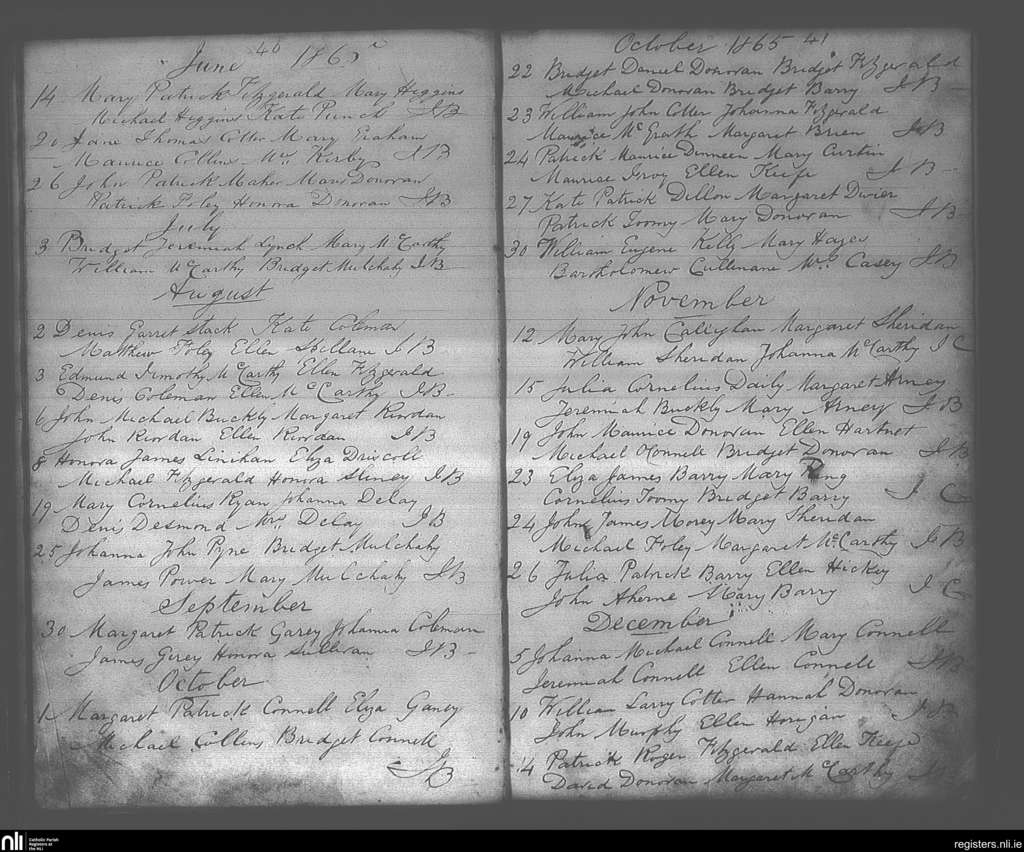 40
June 1865
14 Mary Patrick Fitzgerald Mary Higgins
Michael Higgins Kate Punch JB
Jane Thomas Cotter Mary
Maurice Collins Mrs Kirby JB
26 John Patrick Maher Mary Donovan
Patrick Foley Honora Donovan JB
July
3 Bridget Jeremiah Lynch Mary McCarthy
William McCarthy Bridget Mulchahy JB
August
2 Denis Garret Stack Kate Coleman
Matthew Foley Ellen Spillane JB
3 Edmund Timothy McCarthy Ellen Fitzgerald
Denis Coleman Ellen McCarthy JB
6 John Michael Buckly Margaret Riordan
John Riordan Ellen Riordan JB
8 Honora James Linihan Eliza Driscoll
Michael Fitzgerald Honora Sliney JB
19 Mary Cornelius Ryan Johanna Delay
Denis Desmond Mrs Delay JB
25 Johanna John Pyne Bridget Mulchahy
James Power Mary Mulchahy JB
September
30 Margaret Patrick Garey Johanna Coleman
James Girey Honora Sullivan JB
October
1 Margaret Patrick Connell Eliza Ganey
Michael Collins Bridget Connell
JB
October 1865 41
22 Bridget Daniel Donovan Bridget Fitzgerald
Michael Donovan Bridget Barry JB
23 William John Cotter Johanna Fitzgerald
Maurice McGrath Margaret Brien JB
24 Patrick Maurice Dinneen Mary Curtin
Maurice Ellen Keefe JB
27 Kate Patrick Dillon Margaret Dwier
Patrick Toomy Mary Donovan JB
30 William Eugene Kelly Mary Hayes
Bartholomew Cullinane Mrs Casey JB
November
12 Mary John Callaghan Margaret Sheridan
William Sheridan Johanna McCarthy JC
15 Julia Cornelius Daily Margaret Arney
Jeremiah Buckly Mary Arney JB
19 John Maurice Donovan Ellen Hartnet
Michael OConnell Bridget Donovan JB
23 Eliza James Barry Mary Ring
Cornelius Toomy Bridget Barry JC
24 John James Morey Mary Sheridan
Michael Foley Margaret McCarthy JB
26 Julia Patrick Barry Ellen Hickey
John Aherne Mary Barry JC
December
5 Johanna Michael Connell Mary Connell
Jeremiah Connell Ellen Connell JB
10 William Larry Cotter Hannah Donovan
John Murphy Ellen Horigan JB
14 Patrick Roger Fitzgerald Ellen Keefe
David Donovan Margaret McCarthy
nli Catholic Parish
Registers at
the NLI
registers.nli.ie